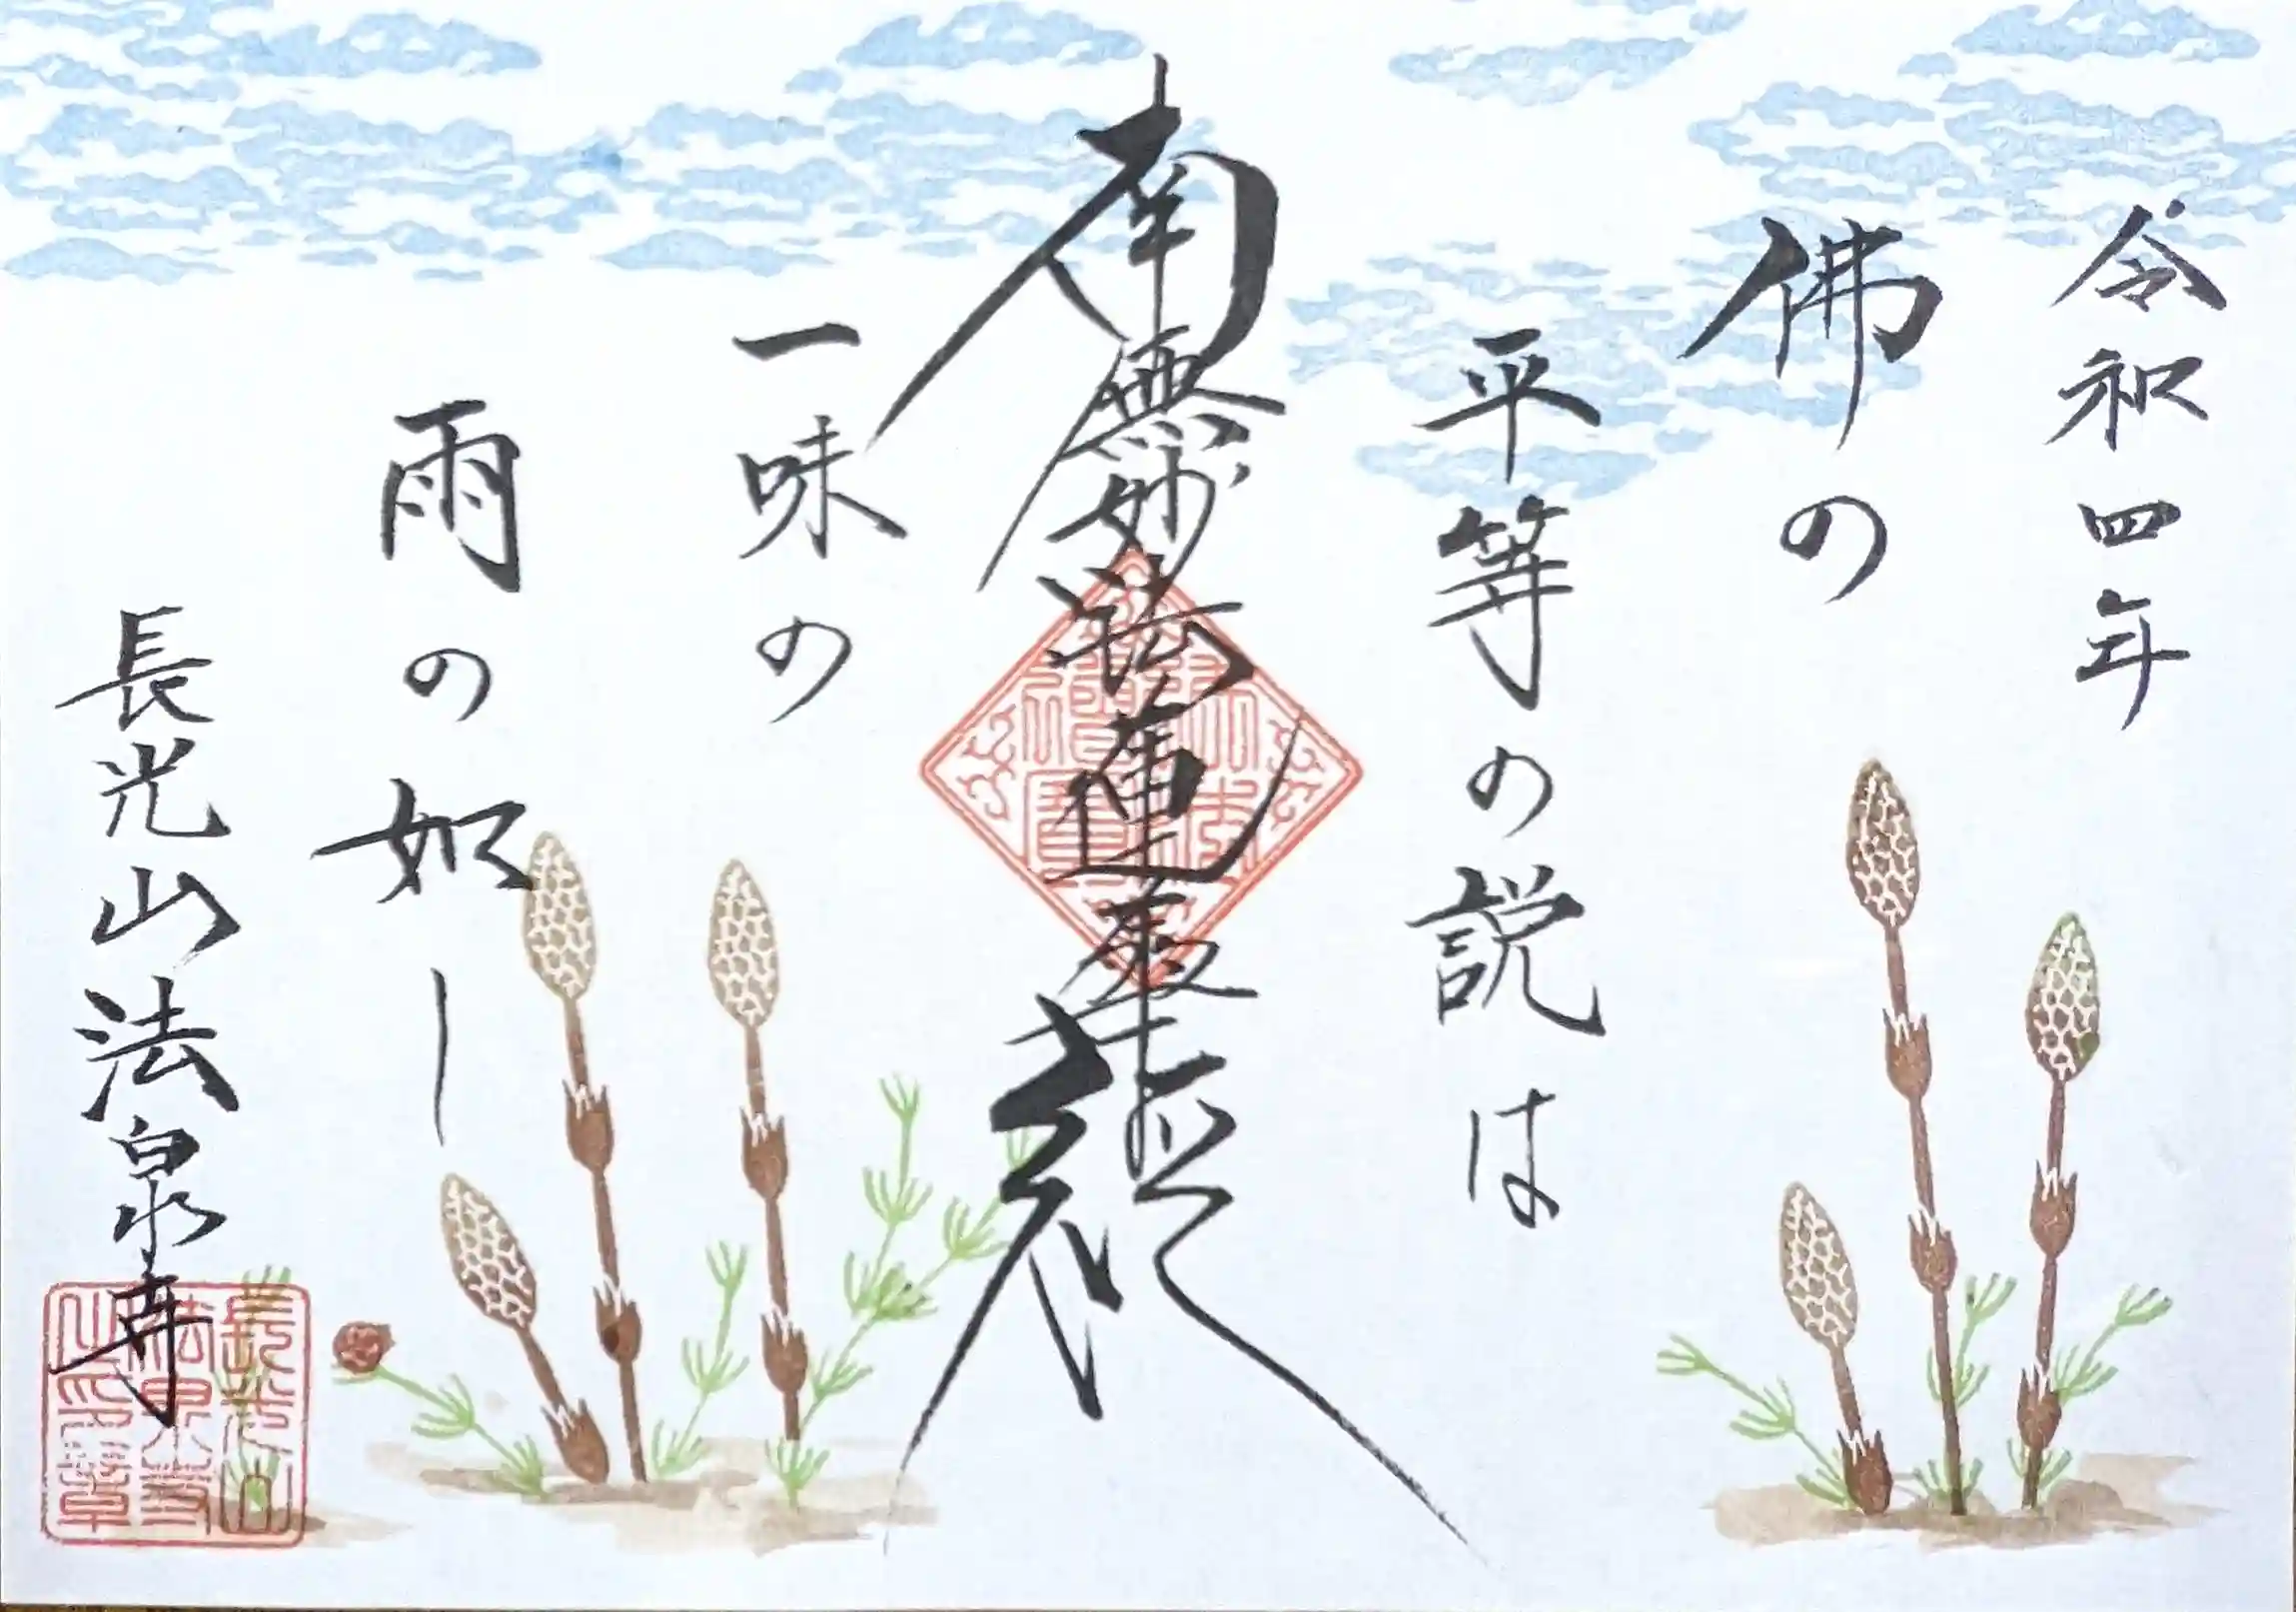 令和四年
佛の
平等の説は
南無妙法蓮華経
一味の
雨の如し
長光山法泉寺
長光山
法泉寺